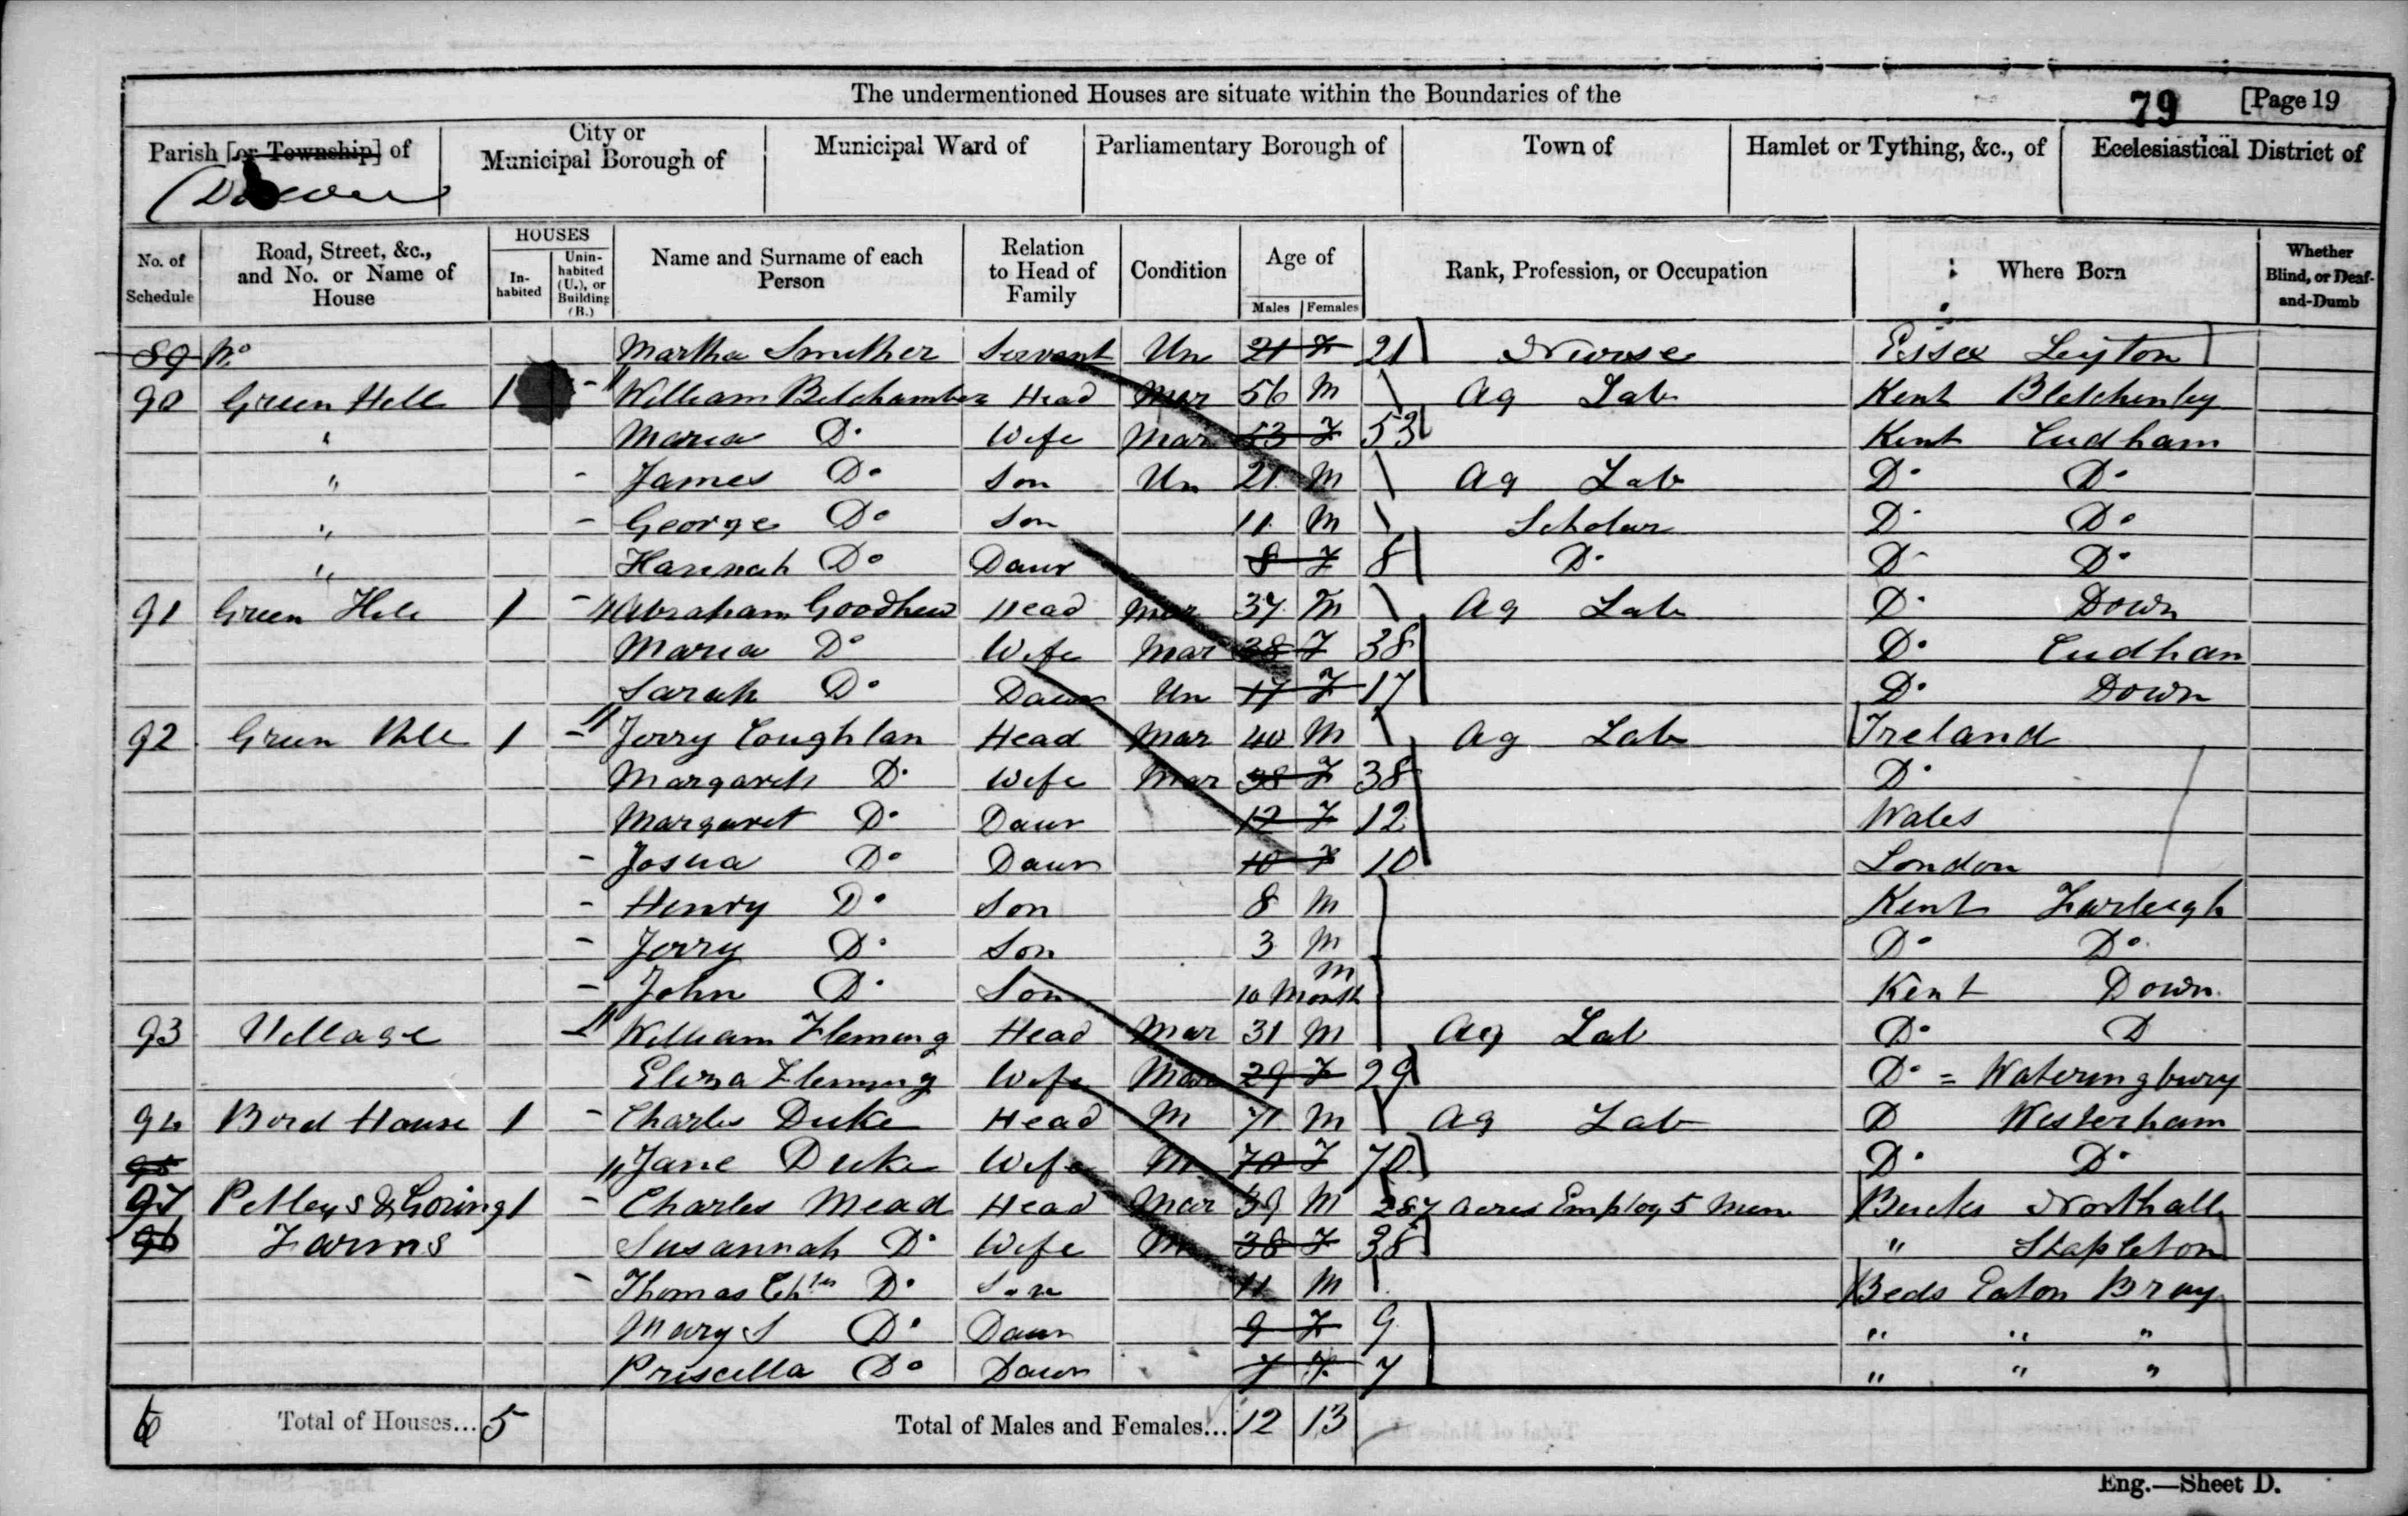 The undermentioned Houses are situate within the Boundaries of the
79 [Page 19
Parish [or Township] of City or Municipal Borough of Municipal Ward of Parliamentary Borough of Town of Hamlet or Tything, &c., of Ecclesiastical District of
Down
No. of Schedule Road, Street, &c., and No. or Name of House HOUSES In-habited Unin-habited (U.), or Building (B.) Name and Surname of each Person Relation to Head of Family Condition Age of Males Females Rank, Profession, or Occupation Where Born Whether Blind, or Deaf-and-Dumb
89 Martha Smither Servant Un 21 F 21 Nurse Essex Leyton
90 Green Hill 1 William Belchamber Head Mar 56 M Ag Lab Kent Bletchenley
" Maria Do Wife Mar 53 F 53 Kent Cudham
" James Do Son Un 21 M Ag Lab Do Do
" George Do Son 11 M Scholar Do Do
" Hannah Do Daur 8 F 8 Do Do Do
91 Green Hill 1 Abraham Goodhew Head Mar 37 M Ag Lab Do Down
Maria Do Wife Mar 38 F 38 Do Cudham
Sarah Do Daur Un 17 F 17 Do Down
92 Green Hill 1 Jerry Coughlan Head Mar 40 M Ag Lab Ireland
Margareth Do Wife Mar 38 F 38 Do
Margaret Do Daur 12 F 12 Wales
Josua Do Daur 10 F 10 London
Henry Do Son 8 M Kent Farleigh
Jerry Do Son 3 M Do Do
John Do Son 10 Month M Kent Down
93 Village William Fleming Head Mar 31 M Ag Lab Do D
Eliza Fleming Wife Mar 29 F 29 Do = Wateringbury
94 Bord House 1 Charles Duke Head M 71 M Ag Lab D Westerham
95 Jane Duke Wife M 70 F 70 Do Do
97 Petleys & Goring 1 Charles Mead Head Mar 39 M 287 Acres Employ 5 Men Bucks Northall
96 Farms Susannah Do Wife M 38 F 38 " Stapleton
Thomas Chas Do Son 11 M Beds Eaton Bray
Mary S Do Daur 9 F 9 " " "
Priscilla Do Daur 7 F 7 " " "
6 Total of Houses... 5 Total of Males and Females... 12 13
Eng.—Sheet D.